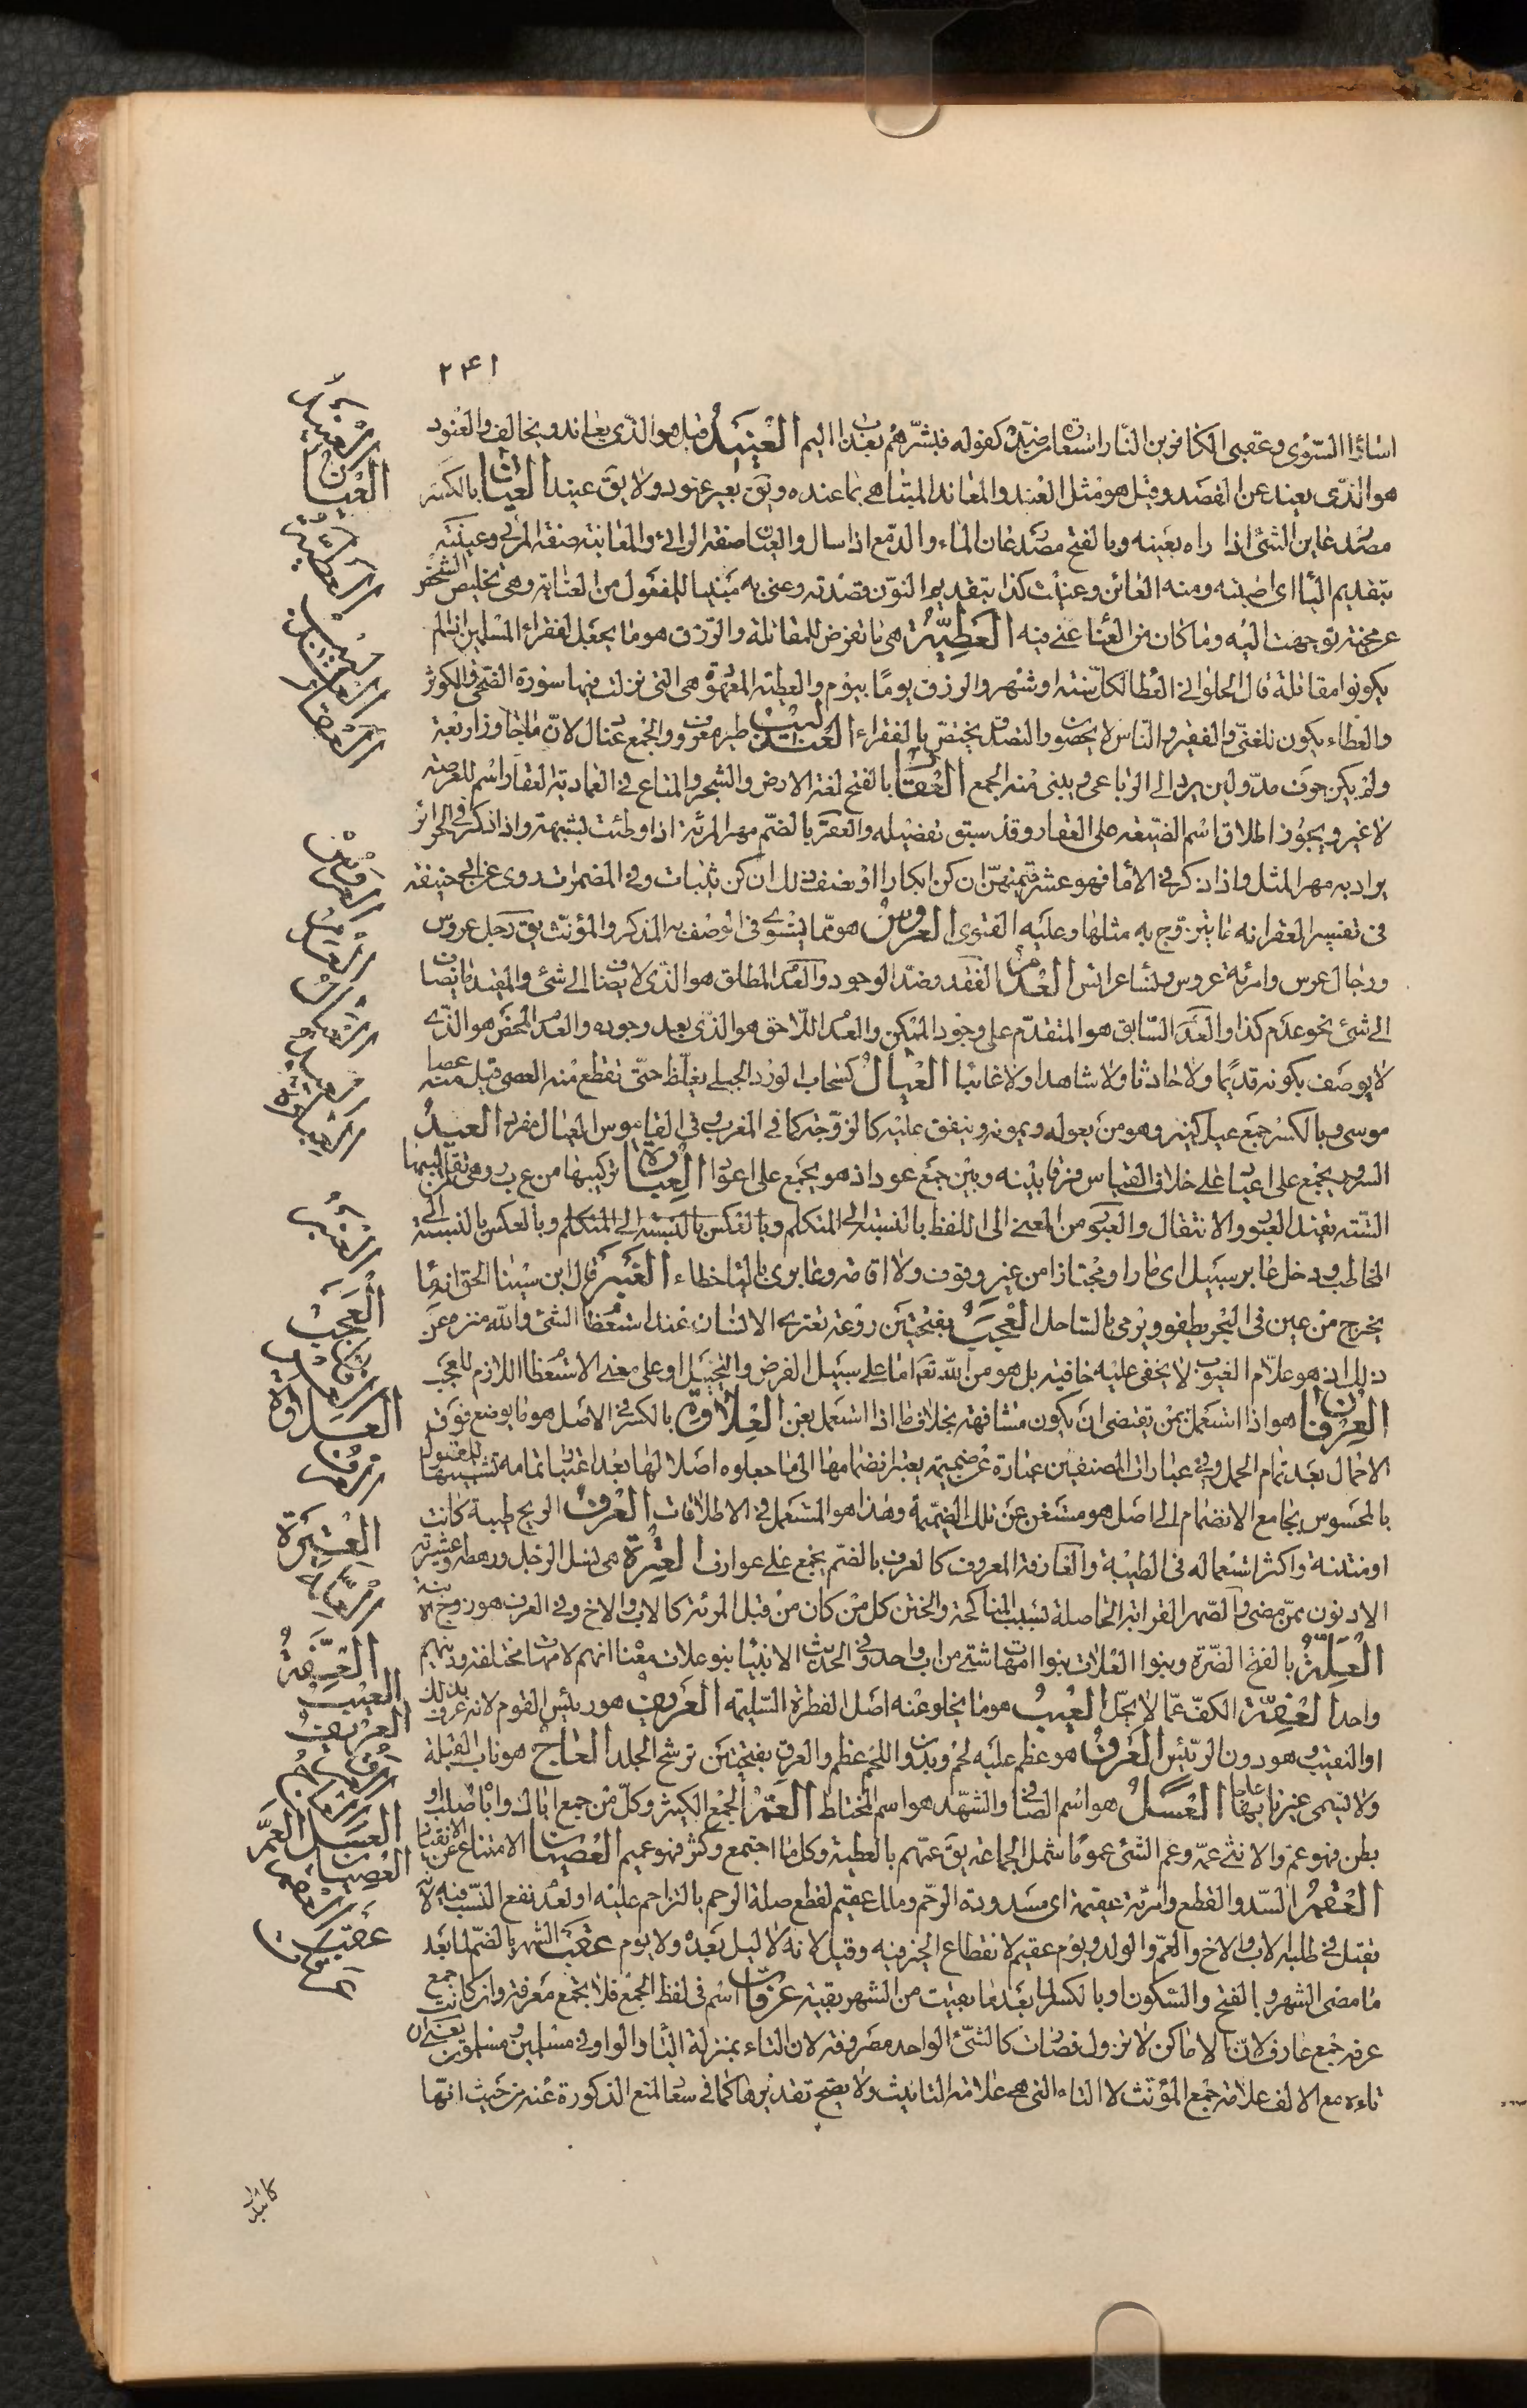 ٢٤١
اساؤا السّوأى وعقبى الكافرين النّار استعارة ضدّيّة كقوله فبشّرهم بعذاب اليم العنيد قيل هو الذّى يعاند ويخالف والعنود
هو الذّى يعيند عن القصد وقيل هو مثل العنيد والمعاند المتباهى بما عنده ويق بعير عنود ولا يق عنيد العيان بالكسر
مصدر عاين الشئ اذا راه بعينه وبالفتح مصدر عان الماء والدّمع اذا سال والعيان صفة الرائى والمعاينة صفة المرئى وعينته
بتقديم اليا اى اصبته ومنه العائن وعنيت كذا بتقديم النون قصدته وعنى به مبنيا للمفعول من العناية وهى تخليص الشخص
عن محنة توجهت اليه وما كان من العنا عنى فيه العطيّة هى ما تفرض للمقاتلة والرّزق هو ما يجعل لفقراء المسلمين اذا لم
يكونوا مقاتلة قال الحلوانى العطا لكل سنة او شهر والرزق يوما بيوم والعطية المعهودة هى التى نزلت فيها سورة الضحى والكوثر
والعطاء يكون للغنىّ والفقير والناس لا يحصون والتصدق يختص بالفقراء العندليب طير معروف والجمع عنادل لانّ ما جاوز اربعة
ولم يكن حرف مدّ ولين يرد الى الرباعى ويبنى منه الجمع العقار بالفتح لغة الارض والشجر والمتاع فى العمادية العقار اسم للعرصة
لا غير ويجوز اطلاق اسم الضيعة على العقار وقد سبق تفصيله والعقر بالضّم مهر المرئة اذا وطئت بشبهة واذا ذكر فى الحرائر
يراد به مهر المثل واذا ذكر فى الأما فهو عشر قيمتهنّ ان كن ابكارا او نصف ذلك ان كن ثيبات وفى المضمرات روى عن ابى حنيفة
فى تفسير العقر انه ما يتزوّج به مثلها وعليه الفتوى العروس هو ممّا يستوى فى الوصف به المذكر والمؤنّث يق رجل عروس
ورجال عرس وامرئة عروس ونساء عرائس العدم الفقد وضدّ الوجود والعدم المطلق هو الذّى لا يضاف الى شئ والمقيد ما يضاف
الى شئ نحو عدم كذا والعدم السّابق هو المتقدّم على وجود الممكن والعدم اللّاحق هو الذّى بعد وجوده والعدم المحض هو الذّى
لا يوصف بكونه قديما ولا حادثا ولا شاهدا ولا غائبا العيال كسحاب لورد الجبلى يغلظ حتّى تقطع منه العصى قيل منه عصا
موسى وبالكسر جمع عيل كيّد وهو من يعوله ويمونه وينفق عليه كالزّوجة كما فى المغرب وفى القاموس العيال مفرد العيد
السرور يجمع على اعياد على خلاف القياس فرقا بينه وبين جمع عود اذ هو يجمع على اعواد العبارة تركيبها من ع ب ر وهى تقاليبها
السّتة تفيد العبور والانتقال والعبور من المعنى الى اللفظ بالنسبة الى المتكلم وبالعكس بالنسبة الى المتكلم وبالعكس بالنسبة الى
المخاطب ودخل عابر سبيل اى مارا ومجتازا من غير وقوف ولا اقامة وعابرى بالتا خطاء العنبر قال ابن سينا الحق انه ما
يخرج من عين فى البحر يطفو ويرمى بالساحل العجب بفتحتين روعة تعترى الانسان عند استعظام الشئ والله منزه عن
ذلك اذ هو علّام الغيوب لا يخفى عليه خافية بل هو من الله تعم اما على سبيل الفرض والتخييل او على معنى الاستعظام اللازم للعجب
العرفان هو اذا استعمل بمن يقتضى ان يكون مشافهة بخلاف ما اذا استعمل بعن العلاوة بالكسر فى الاصل هو ما يوضع فوق
الاحمال بعد تمام الحمل وفى عبارات المصنفين عبارة عن ضميمة يعتبر انضمامها الى ما جعلوه اصلا لها بعد اعتبار تمامه تشبيها للمعقول
بالمحسوس بجامع الانضمام الى اصل هو مستغن عن تلك الضميمة وهذا هو المستعمل فى الاطلاقات العرف الريح طيبة كانت
او منتنة واكثر استعماله فى الطيبة والعارفة المعروف كالعرف بالضم يجمع على عوارف العترة هى نسل الرجل ورهطه وعشيرته
الادنون ممّن مضى والصّهر القرابة الحاصلة بسبب المناكحة والختن كل من كان من قبل المرئة كالاب والاخ وفى العرف هو زوج الابنة
العلّة بالفتح الضّرة وبنوا العلات بنوا امهات شتى من اب واحد وفى الحديث الانبيا بنو علات معنا انهم لامهات مختلفة ودينهم
واحد العفّة الكفّ عمّا لا يحلّ العيب هو ما يخلو عنه اصل الفطرة السّليمة العريف هو رئيس القوم لانه عرف بذلك
او النقيب وهو دون الرئيس العرق هو عظم عليه لحم وبدون اللحم عظم والعرق بفتحتين ترشح الجلد العاج هو ناب الفيلة
ولا يسمى غير نابها عاجا العسل هو اسم الصافى والشهد هو اسم المختلط العمّ الجمع الكثير وكلّ من جمع ابا لك واباه صلب او
بطن فهو عم والانثى عمة وعم الشئ عموما شمل الجماعة يق عمّهم بالعطية وكل ما اجتمع وكثر فهو عميم العصيان الامتناع عن الانقياد
العقم السّد والقطع وامرئة عقيمة اى مسدودة الرّحم ومال عقيم لقطع صلة الرحم بالتزاحم عليه او لعدم نفع النّسب فيه لانه
يقتل فى طلبه الاب والاخ والعمّ والولد ويوم عقيم لانقطاع الخير فيه وقيل لانه لا ليل بعده ولا يوم عقب الشهر بالضم لما بعد
ما مضى الشهر وبالفتح والسّكون او بالكسر لما بعد ما بقيت من الشهر بقية عرفات اسم فى لفظ الجمع فلا يجمع معرفة وان كانت جمع
عرفة جمع عارف لانّ الاماكن لا تزول فصارت كالشّئ الواحد مصروفة لان التاء بمنزلة اليا والواو فى مسلمين ومسلمون يعنى ان
تاءه مع الالف علامة جمع المؤنّث لا التاء التى هى علامة التانيث ولا يصح تقديرها كما فى سعاد لمنع المذكورة عنه من حيث انها
العنيد
العيان
العطيّة
العندليب
العقار
العروس
العدم
العيال
العيد
العبارة
العنبر
العجب
العرفان
العلاوة
العرف
العترة
العلّة
العفّة
العيب
العريف
العرق
العاج
العسل العمّ
العصيان
العقم
عقب
عرفات